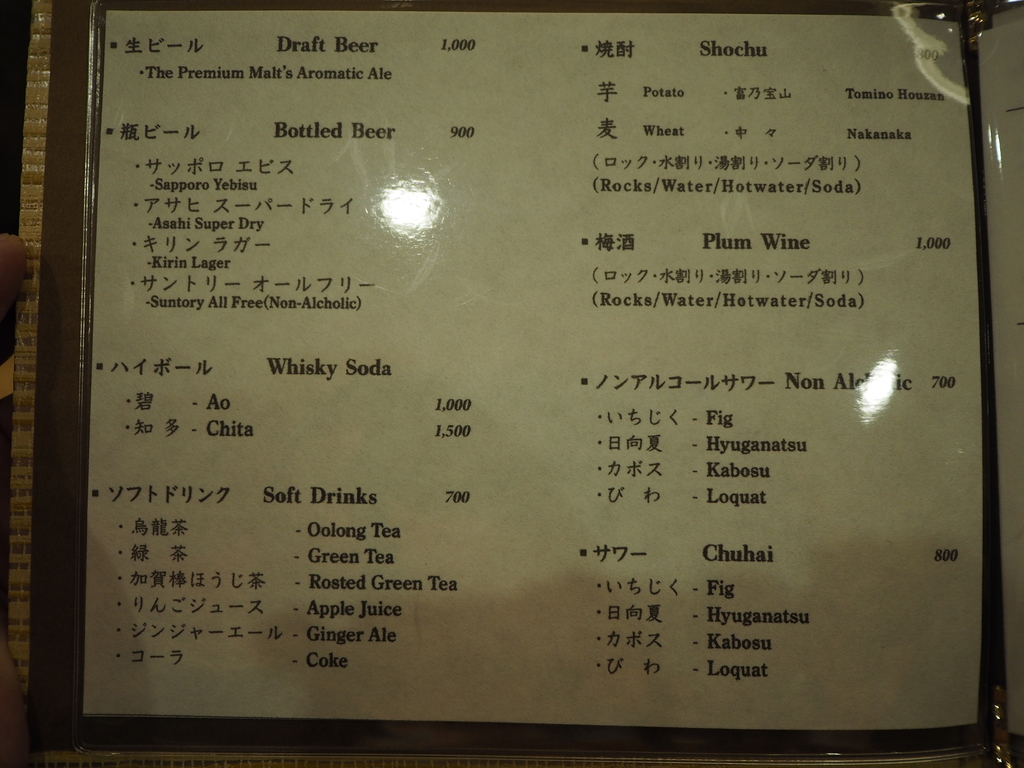 ▪生ビール Draft Beer 1,000
・The Premium Malt's Aromatic Ale
▪瓶ビール Bottled Beer 900
・サッポロ エビス
-Sapporo Yebisu
・アサヒ スーパードライ
-Asahi Super Dry
・キリン ラガー
-Kirin Lager
・サントリー オールフリー
-Suntory All Free(Non-Alcholic)
▪ハイボール Whisky Soda
・碧 - Ao 1,000
・知多 - Chita 1,500
▪ソフトドリンク Soft Drinks 700
・烏龍茶 - Oolong Tea
・緑 茶 - Green Tea
・加賀棒ほうじ茶 - Rosted Green Tea
・りんごジュース - Apple Juice
・ジンジャーエール - Ginger Ale
・コーラ - Coke
▪焼酎 Shochu
芋 Potato ・富乃宝山 Tomino Houzan
麦 Wheat ・中 々 Nakanaka
(ロック・水割り・湯割り・ソーダ割り)
(Rocks/Water/Hotwater/Soda)
▪梅酒 Plum Wine 1,000
(ロック・水割り・湯割り・ソーダ割り)
(Rocks/Water/Hotwater/Soda)
▪ノンアルコールサワー Non 700
・いちじく - Fig
・日向夏 - Hyuganatsu
・カボス - Kabosu
・び わ - Loquat
▪サワー Chuhai 800
・いちじく - Fig
・日向夏 - Hyuganatsu
・カボス - Kabosu
・び わ - Loquat